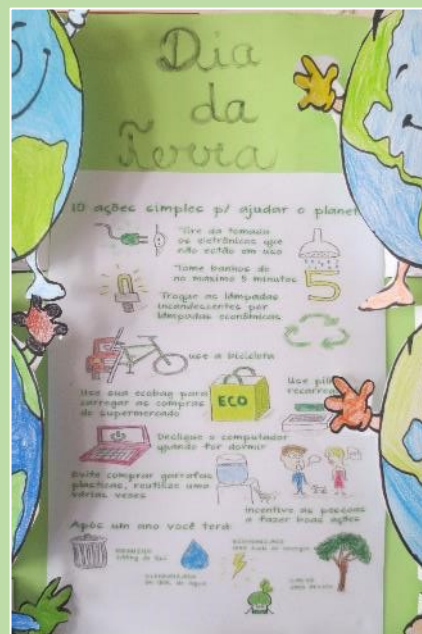 Dia
da
Terra
10 ações simples p/ ajudar o planet
Tire da tomada
os eletrônicos que
não estão em uso
Tome banhos de
no maximo 5 minutos
5
Troque as lâmpadas
incandescentes por
lâmpadas econômicas
use a bicicleta
Use sua ecobag para
carregar as compras
do supermercado
ECO
Use
recarre
Desligue o computador
quando for dormir
Evite comprar garrafas
plasticas, reutilize uma
várias vezes
incentive as pessoas
a fazer boas ações
Após um ano você terá: